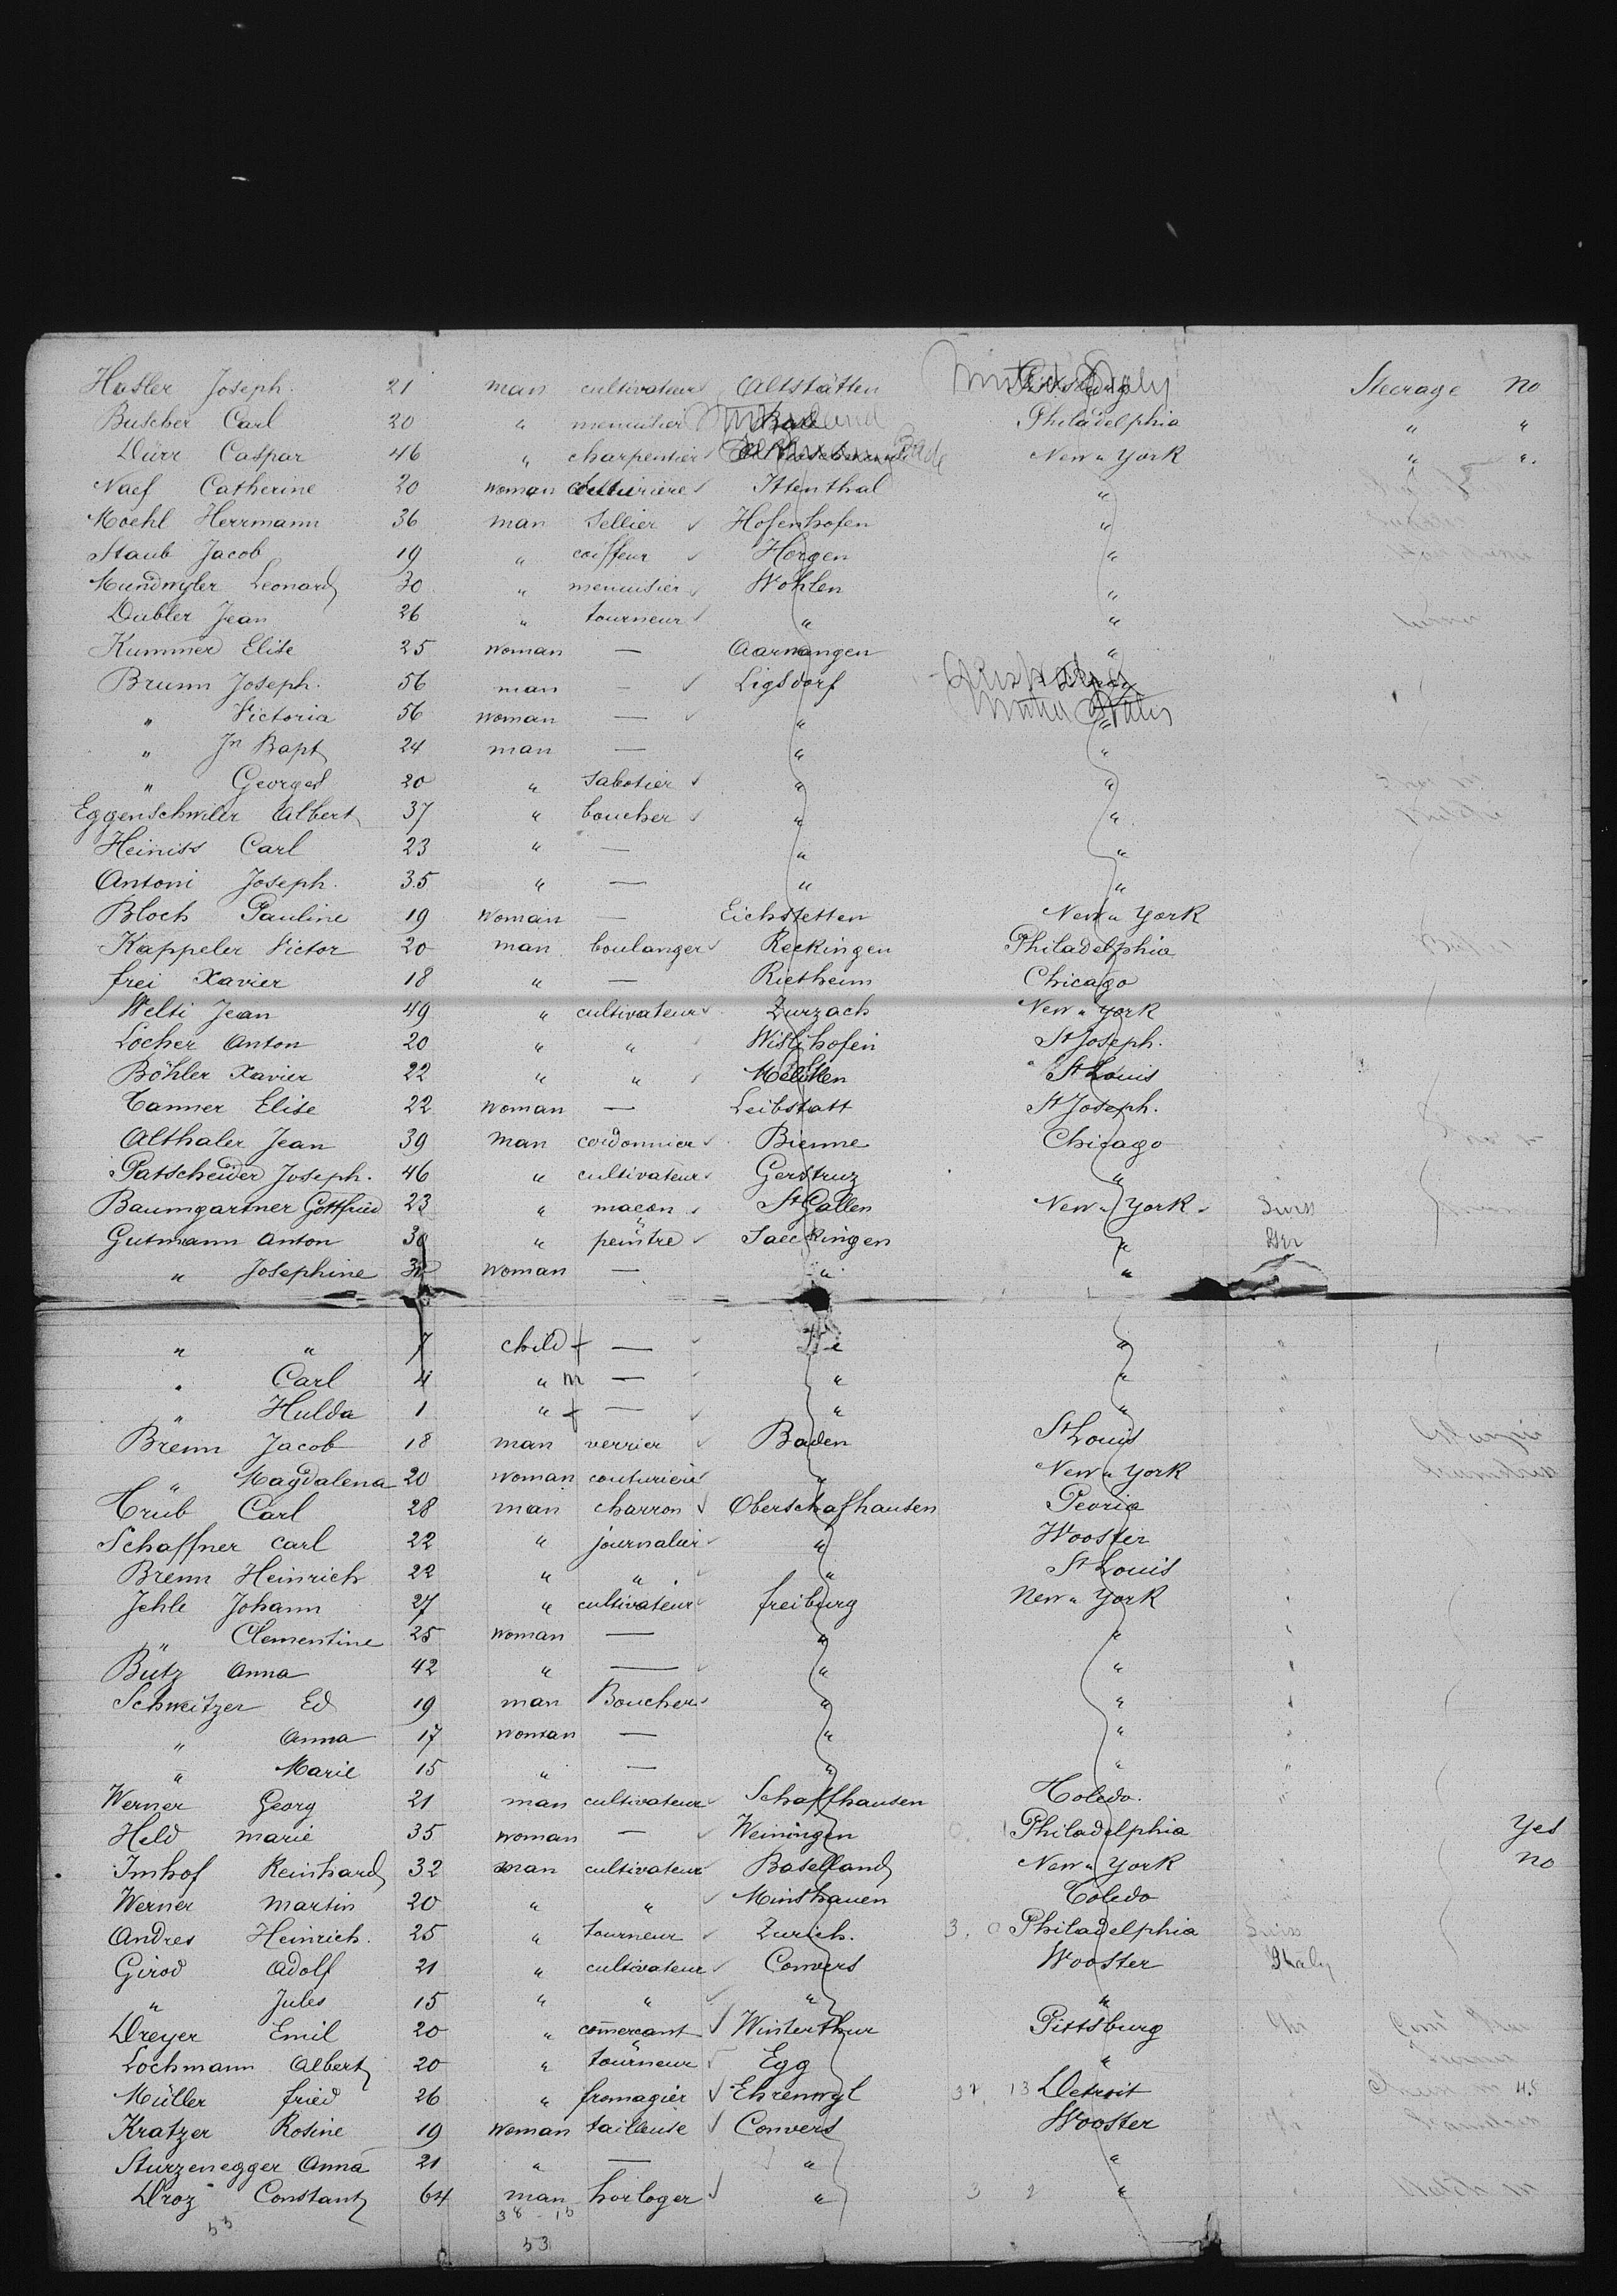 Hasler Joseph. 21 man cultivateur Altstätten Steerage no
Butcher Carl 20 " menuisier Philadelphia " "
Dürr Caspar 46 " charpentier New " York " "
Naef Catherine 20 woman Ittenthal "
Moehl Herrmann 36 man sellier Hofenhofen "
Staub Jacob 19 " coiffeur Horgen "
Mundwyler Leonard 30 " menuisier Wohlen "
Dubler Jean 26 " tourneur " "
Kummer Elise 25 woman — Aarwangen "
Brunn Joseph. 56 man — Ligsdorf
" Victoria 56 woman — " "
" Jn Bapt 24 man — " "
" Georges 20 " sabotier " "
Eggenschwiler Albert 37 " boucher " "
Heiniss Carl 23 " — " "
Antoni Joseph. 35 " — " "
Bloch Pauline 19 woman — Eichstetten New " York
Kappeler Victor 20 man boulanger Reckingen Philadelphia
frei Xavier 18 " — Rietheim Chicago
Welti Jean 49 " cultivateur Zurzach New " York
Locher Anton 20 " " Wislihofen St Joseph.
Böhler Xavier 22 " " St Louis
Tanner Elise 22 woman — Leibstatt St Joseph.
Althaler Jean 39 man cordonnier Bienne Chicago
Patscheider Joseph. 46 " cultivateur Gerstruz "
Baumgartner Gottfried 23 " macon St Gallen New " York Swiss
Gutmann Anton 30 " peintre Saeckingen " Ger
" Josephine woman — " "
" " 7 child f — "
" Carl 4 " m — " "
" Hulda 1 " f — " "
Brenn Jacob 18 man verrier Baden St Louis
" Magdalena 20 woman couturière " New " York
Trub Carl 28 man charron Oberschafhausen Peoria
Schaffner Carl 22 " journalier " Wooster
Brenn Heinrich 22 " " " St Louis
Jehle Johann 27 " cultivateur freiburg New " York
" Clementine 25 woman — " "
Butz Anna 42 " — " "
Schweitzer Ed 19 man Boucher " "
" Anna 17 woman — " "
" Marie 15 " — " "
Werner Georg 21 man cultivateur Schaffhausen Toledo.
Held Marie 35 woman — Weiningen Philadelphia Yes
Imhof Reinhard 32 man cultivateur Baselland New " York no
Werner Martin 20 " " Minshauen Toledo
Andres Heinrich. 25 " tourneur Zurich. Philadelphia Swiss
Girod Adolf 21 " cultivateur Convers Wooster Italy
" Jules 15 " " " "
Dreyer Emil 20 " comercant Winterthur Pittsburg Ger
Lochmann Albert 20 " tourneur Egg "
Müller fried 26 " fromagier Ehrenwyl Detroit
Kratzer Rosine 19 woman tailleuse Convers Wooster
Sturzenegger Anna 21 " — " "
Droz Constant 64 man horloger " "
53 38 - 15
53